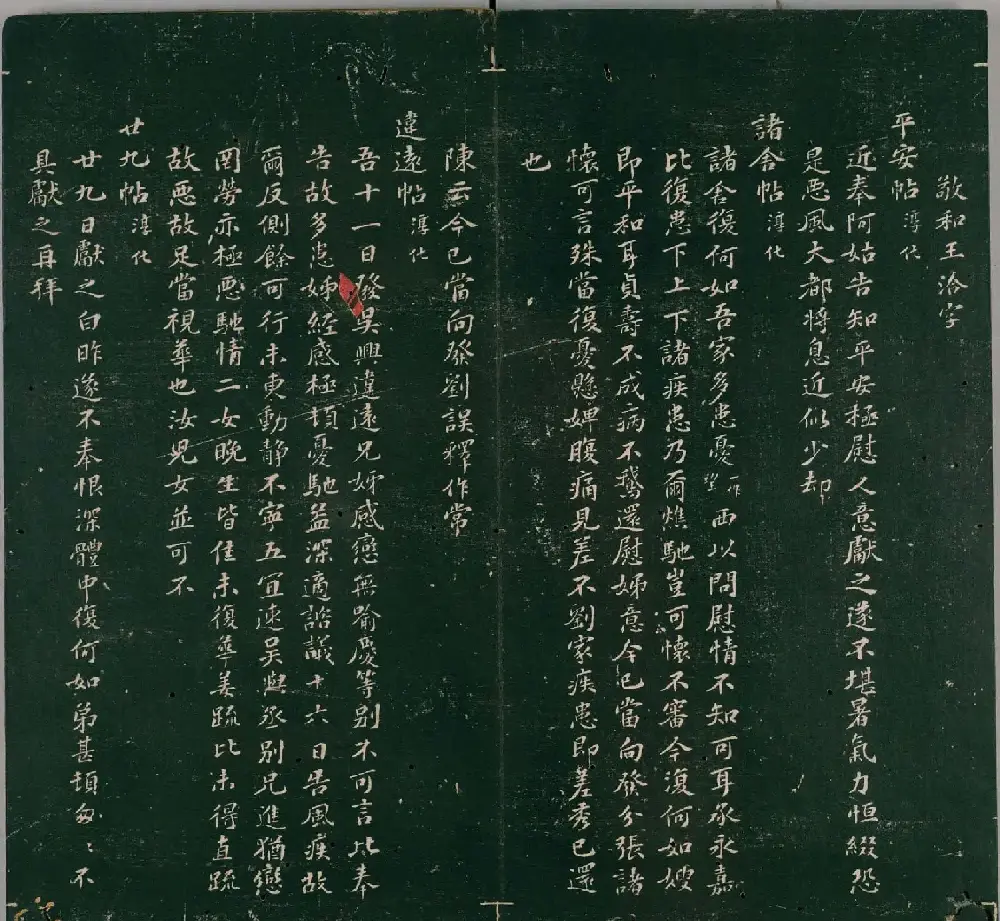 敬和王洽字
平安帖 淳化
近奉阿姑告知平安極慰人意獻之遂不堪暑氣力恒綴恐
是惡風大都將息近似少却
諸舍帖 淳化
諸舍復何如吾家多患憂 一作 西以問慰情不知可耳承永嘉
比復患下上下諸疾患乃爾燋馳豈可懷不審今復何如嫂
即平和耳貞壽不成病不鵝還慰姊意今已當向發分張諸
懷可言殊當復憂懸婢腹痛見差不劉家疾患即差秀已還
也
陳云今已當向發劉誤釋作常
違遠帖 淳化
吾十一日發吳興違遠兄姊感戀無喻慶等別不可言比奉
告故多患姊經感極頓憂馳益深適諮議十六日告風疾故
爾反側餘可行未東動靜不寧五宜速吳興丞別兄進猶戀
罔勞亦極惡馳情二女晚生皆佳未復華姜疏比未得直疏
故惡故足當視華也汝兒女並可不
廿九帖 淳化
廿九日獻之白昨遂不奉恨深體中復何如弟甚頓匆〻不
具獻之再拜